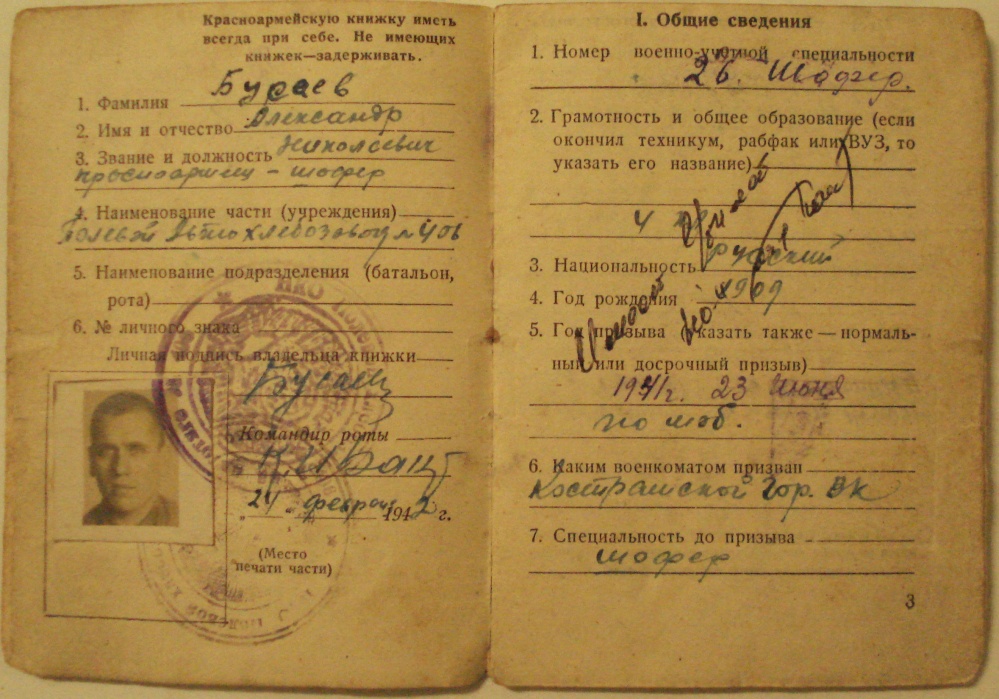 Красноармейскую книжку иметь
всегда при себе. Не имеющих
книжек—задерживать.
Бураев
1. Фамилия
Александр
2. Имя и отчество
Николаевич
3. Звание и должность
красноармеец – шофер
4. Наименование части (учреждения)
Полевой Автохлебозавод № 406
5. Наименование подразделения (батальон,
рота)
6. № личного знака
Личная подпись владельца книжки
Бураев
Командир роты
24 февраля 1942 г.
(Место
печати части)
I. Общие сведения
1. Номер военно-учетной специальности
26. Шофер.
2. Грамотность и общее образование (если
окончил техникум, рабфак или ВУЗ, то
указать его название)
4
3. Национальность русский
4. Год рождения 1909
5. Год призыва (указать также — нормаль-
ный или досрочный призыв)
1941 г. 23 июня
по моб.
6. Каким военкоматом призван
Костромской гор. ВК
7. Специальность до призыва
шофер
3